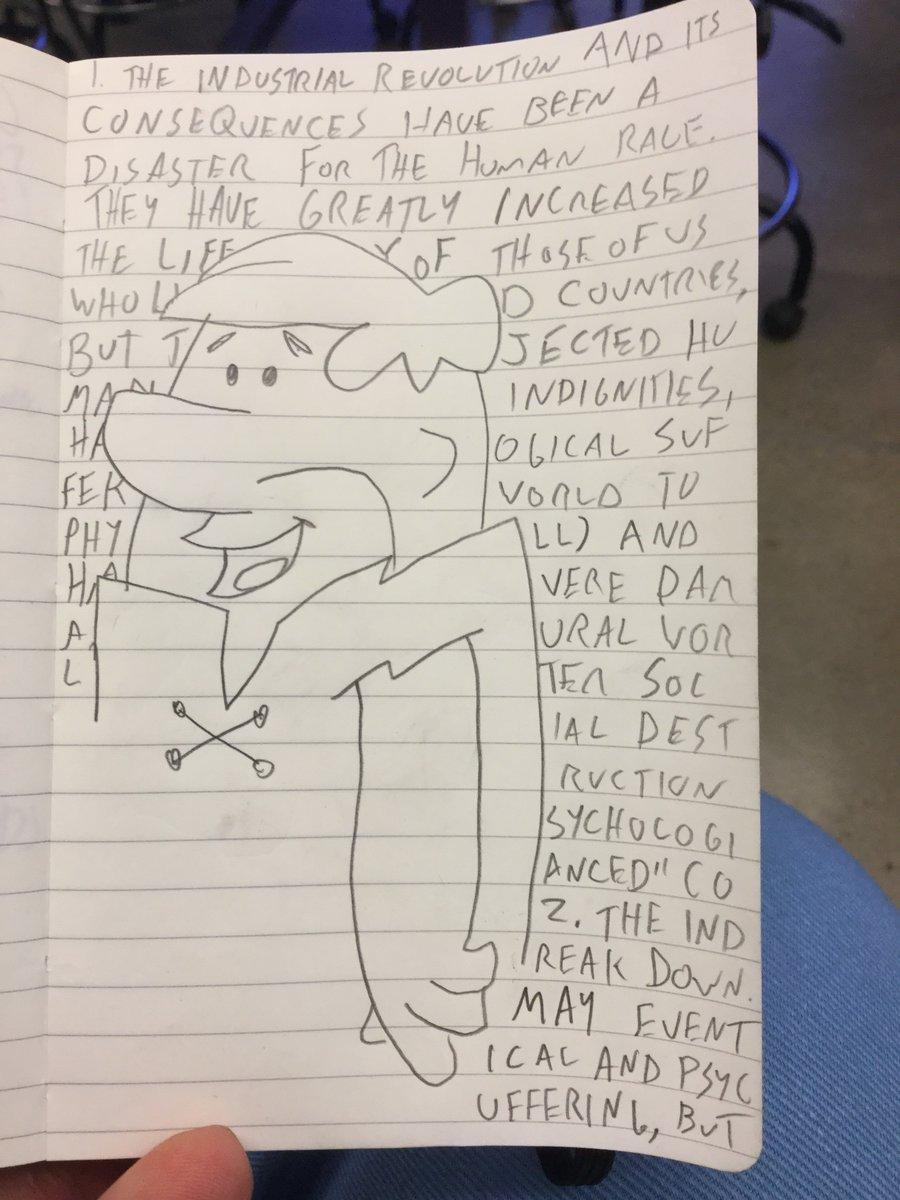 1. THE INDUSTRIAL REVOLUTION AND ITS
CONSEQUENCES HAVE BEEN A
DISASTER FOR THE HUMAN RACE.
THEY HAVE GREATLY INCREASED
THE LIFE Y OF THOSE OF US
WHO LI D COUNTRIES,
BUT T JECTED HU
MAN INDIGNITIES,
HA OGICAL SUF
FER WORLD TO
PHY LL) AND
HA VERE DAM
A URAL WOR
L TER SOC
IAL DEST
RUCTION
SYCHOLOGI
ANCED" CO
2. THE IND
REAK DOWN.
MAY EVENT
ICAL AND PSYC
UFFERING, BUT